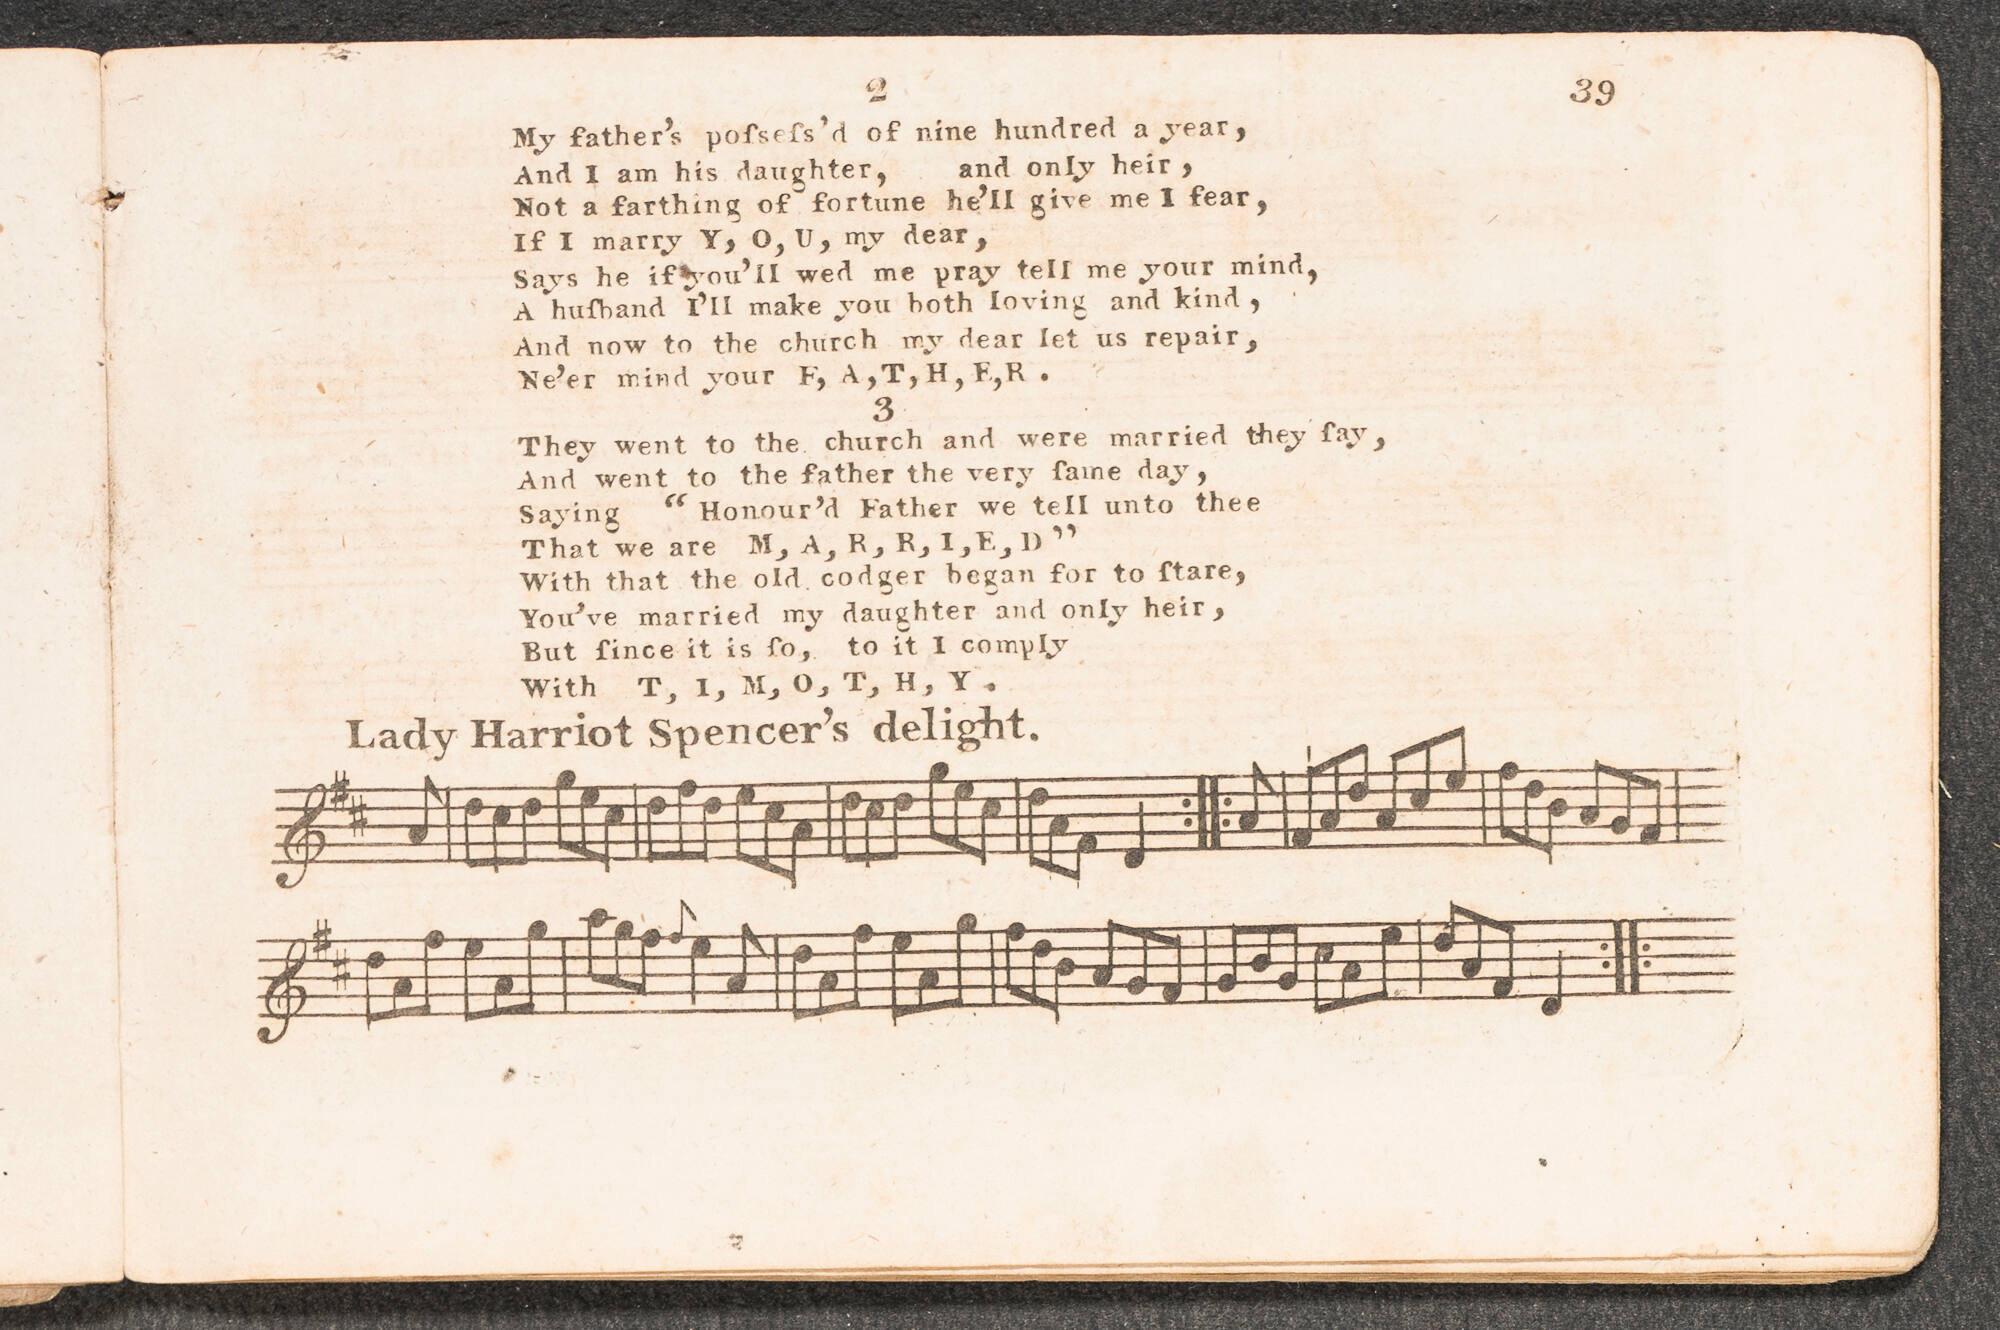 2
39
My father's poſseſs'd of nine hundred a year,
And I am his daughter, and only heir,
Not a farthing of fortune he'll give me I fear,
If I marry Y, O, U, my dear,
Says he if you'll wed me pray tell me your mind,
A huſband I'll make you both loving and kind,
And now to the church my dear let us repair,
Ne'er mind your F, A, T, H, E, R.
3
They went to the church and were married they ſay,
And went to the father the very ſame day,
Saying “Honour'd Father we tell unto thee
That we are M, A, R, R, I, E, D”
With that the old codger began for to ſtare,
You've married my daughter and only heir,
But ſince it is ſo, to it I comply
With T, I, M, O, T, H, Y.
Lady Harriot Spencer's delight.